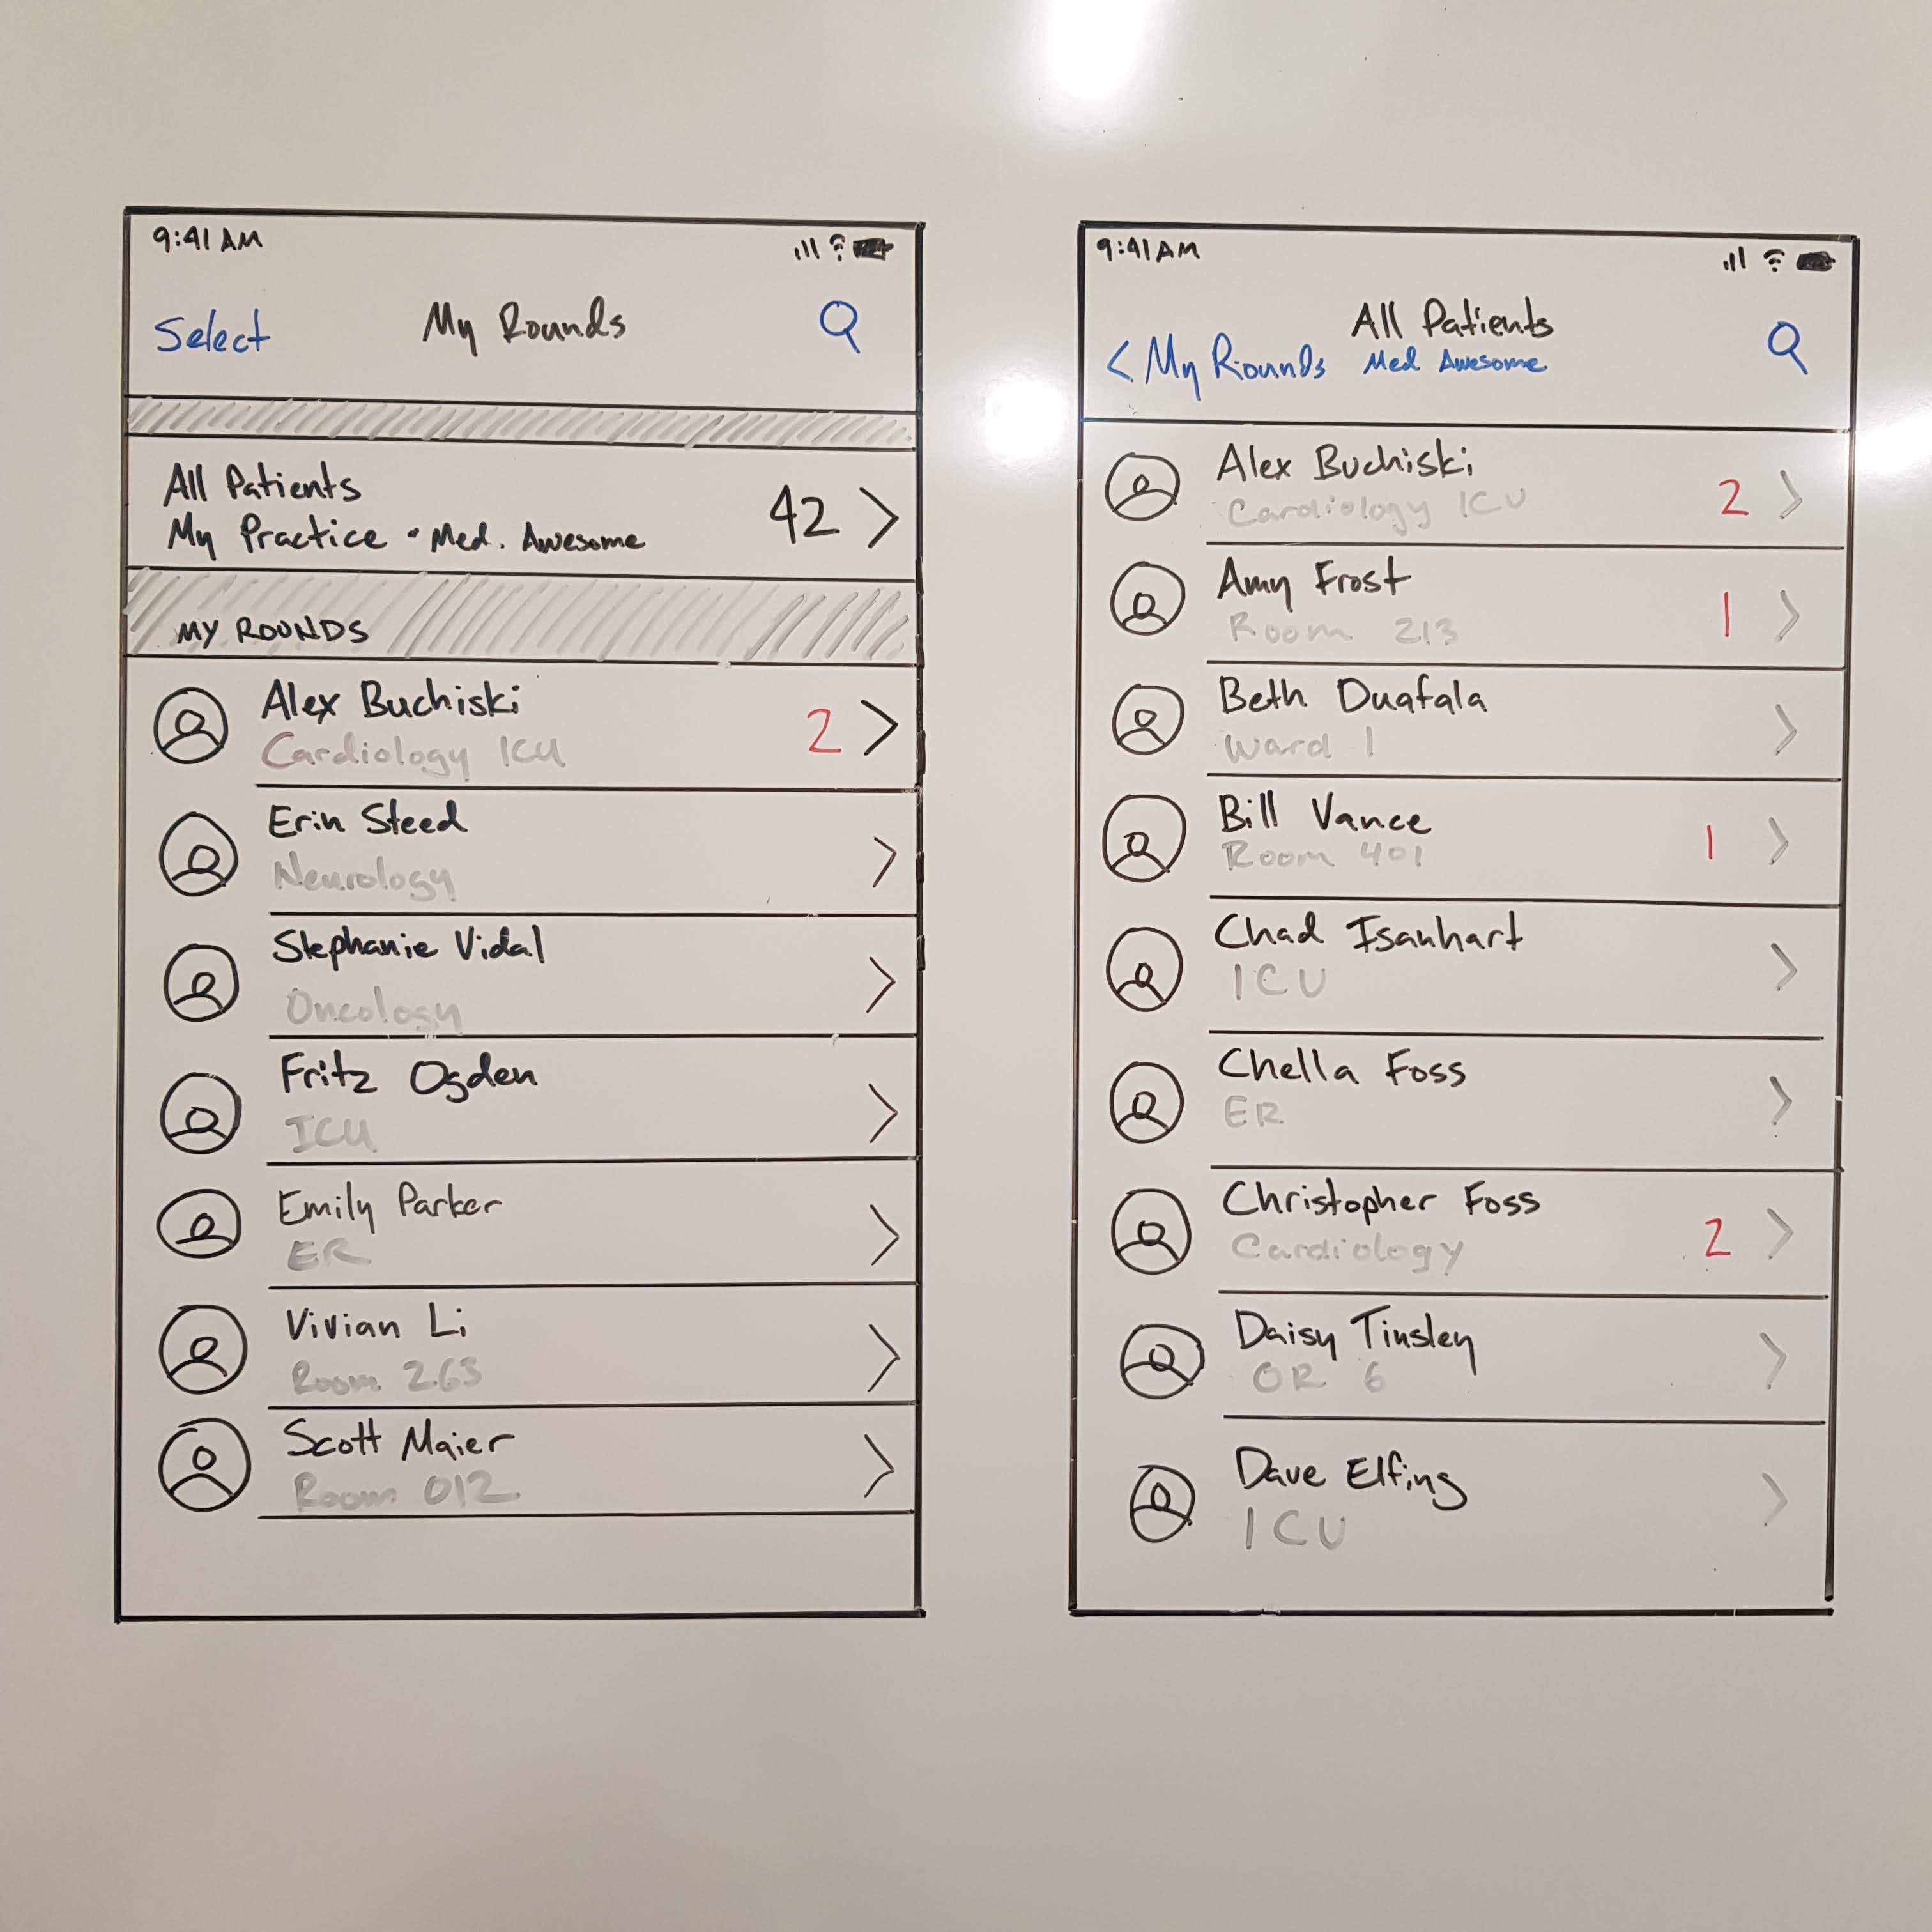 9:41 AM
Select
My Rounds
All Patients
My Practice • Med. Awesome
42
MY ROUNDS
Alex Buchiski
Cardiology ICU
2
Erin Steed
Neurology
Stephanie Vidal
Oncology
Fritz Ogden
ICU
Emily Parker
ER
Vivian Li
Room 263
Scott Maier
Room 012
9:41 AM
All Patients
< My Rounds Med Awesome
Alex Buchiski
Cardiology ICU
2
Amy Frost
Room 213
1
Beth Duafala
Ward 1
Bill Vance
Room 401
1
Chad Isanhart
ICU
Chella Foss
ER
Christopher Foss
Cardiology
2
Daisy Tinsley
OR 6
Dave Elfing
ICU